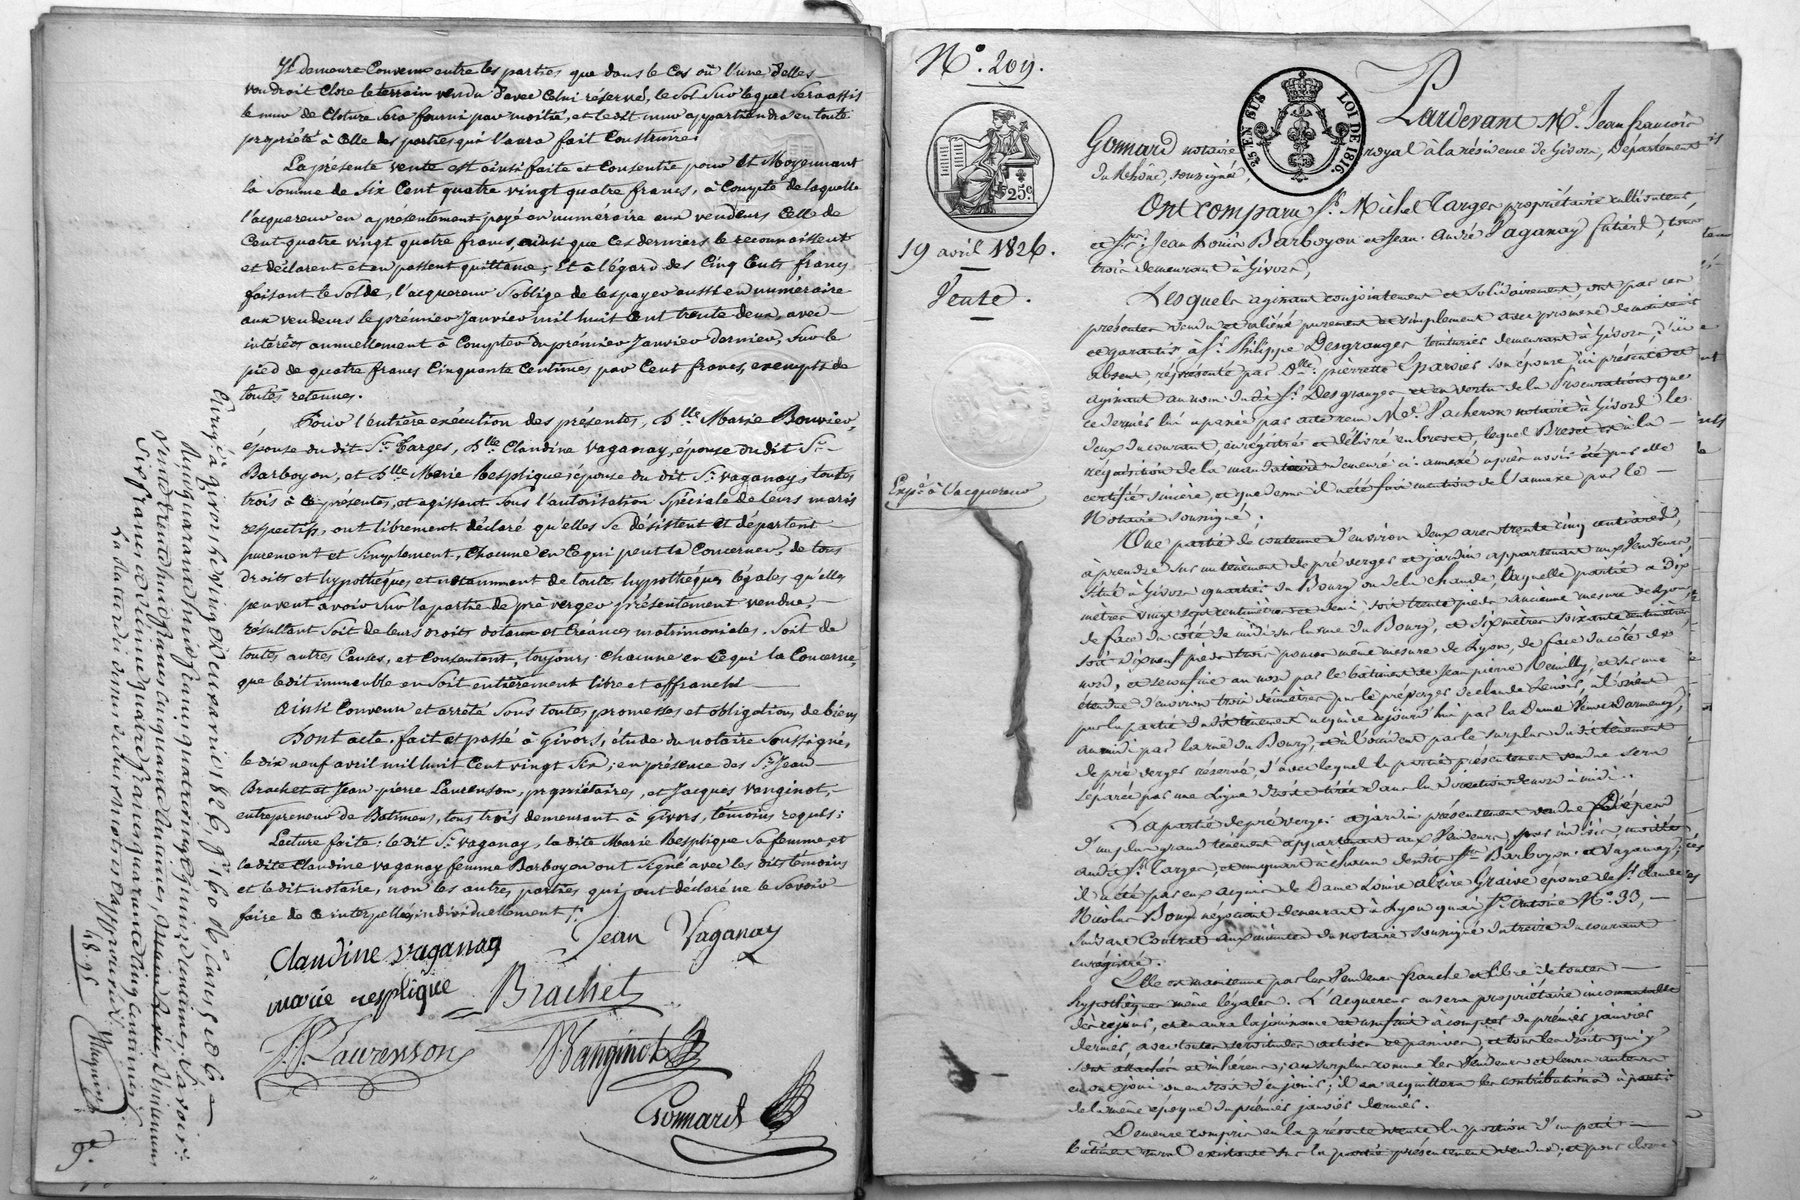 Il demeure Convenu entre les parties que dans le Cas où l'une d'elles
voudroit Clore le terrein vendu d'avec Celui réservé, le Sol Sur lequel Sera assis
le mur de Cloture Sera fourni par moitié, et ledit mur appartiendra en toute
propriété à Celle des parties qui l'aura fait Construire.
La présente vente est ainsi faite et Consentie pour Et Moyennant
la Somme de Six Cent quatre vingt quatre francs, à Compte de laquelle
l'acquereur en a présentement payé en numéraire aux vendeurs Celle de
Cent quatre vingt quatre francs, ainsi que Ces derniers le reconnaissent
et déclarent et en passent quittance; Et à l'égard des Cinq Cents francs
faisant le Solde, l'acquereur S'oblige de les payer aussi en numéraire
aux vendeurs le prémier Janvier mil huit Cent trente deux, avec
intérêts annuellement à Compter du prémier Janvier dernier, Sur le
pied de quatre francs Cinquante Centimes par Cent francs, exempts de
toutes retenues.
Pour l'entière exécution des présentes, D.lle Marie Bouvier,
épouse du dit S.r Targes, D.lle Claudine Vaganay, épouse du dit S.r
Barboyon, et D.lle Marie Respligue, épouse du dit S.r Vaganay, toutes
trois à Ce présentes, et agissant Sous l'autorisation Spéciale de leurs maris
respectifs, ont librement déclaré qu'elles Se désistent et départent
purement et Simplement, Chacune en Ce qui peut la Concerner, de tous
droits et hypothèques et notamment de toute hypothèques légales qu'elles
peuvent avoir Sur la partie de pré verger présentement vendue,
résultant Soit de leurs droits dotaux et Créances matrimoniales. Soit de
toutes autres Causes, et Consentent, toujours Chacune en Ce qui la Concerne,
que ledit immeuble en Soit entièrement libre et affranchi
Ainsi Convenu et arrêté Sous toutes promesses et obligations de biens
Dont acte. fait et passé à Givors, étude du notaire Soussigné,
le dix neuf avril mil huit Cent vingt Six; en présence des S.rs Jean
Brachet et Jean pierre Laurenson, propriétaires, et Jacques Vanginot,
entrepreneur de Batimens, tous trois demeurant à Givors, témoins requis;
Lecture faite. ledit S.r Vaganay, la dite Marie Respligue Sa femme et
la dite Claudine Vaganay femme Barboyon ont Signé avec les dits témoins
et le dit notaire, non les autres parties qui ont déclaré ne le Savoir
faire de Ce interpellés individuellement
Claudine Vaganay
Jean Vaganay
marie respligue
Brachet
J.P. Laurenson
Vanginot
Gonnard
Enregé à givors le vingt
1826, f.o 160
48.95
N.o 209.
25 EN SUS
LOI DE 1816.
25 c.
19 avril 1826.
Vente.
Exp.é à l'acquereur
Pardevant M.e Jean françois
Gonnard notaire royal à la résidence de Givors, Département
du Rhône, soussigné,
Ont comparu S.r Michel Targes propriétaire cultivateur,
et S.rs Jean Louis Barboyon et Jean André Vaganay futiers, tous
trois demeurant à Givors,
Lesquels agissant conjointement et solidairement, ont par ces
présentes vendu et aliéné purement et simplement avec promesse de maintenir
et garantir à S.r Philippe Desgranges teinturier demeurant à Givors, ici
absent, représenté par D.lle pierrette Eparvier son épouse, ici présente et
agissant au nom du dit S.r Desgranges, et en vertu de la Procuration que
ce dernier lui a passée par acte reçu M.e Vacheron notaire à Givors le
deux du courant, enregistrée et délivré en brevet, lequel Brevet est à la
réquisition de la mandataire demeuré ci-annexé après avoir été par elle
certifié sincère, et que dessus il a été fait mention de l'annexe par le
Notaire soussigné.
Une partie de contenue d'environ deux ares trente cinq centiares,
à prendre sur un tènement de pré verger et jardin appartenant aux Vendeurs
situé à Givors quartier du Bourg ou de la chaude, laquelle partie a dix
mètres vingt sept centimètres et demi, soit trente pieds ancienne mesure de Lyon,
de face du côté de midi sur la rue du Bourg, et six mètres soixante centimètres,
soit dix neuf pieds trois pouces même mesure de Lyon, de face du côté de
nord, et se confine au nord par le bâtiment de Jean pierre Neuilly, et sur une
étendue d'environ trois décimètres par le pré verger de claude Lenoir, à l'orient
par la partie du dit tènement acquise aujourd'hui par la Dame Veuve Darmency,
au midi par la rue du Bourg, et à l'occident par le surplus du dit tènement
de pré verger réservé, d'avec lequel la partie présentement vendue sera
séparée par une Ligne droite tirée dans la direction de nord à midi.
La partie de pré verger et jardin présentement vendue Dépend
d'un plus grand tènement appartenant aux Vendeurs par indivis, moitié
audit S.r Targes, et un quart à chacun desdits S.rs Barboyon et Vaganay;
il a été par eux acquis de Dame Louise alzire Graive épouse de S.r claude
Nicolas Boux négociant demeurant à Lyon quai S.t Antoine N.o 33,
suivant Contrat aux minutes du notaire soussigné du treize du courant
enregistré.
Elle est maintenue par les Vendeurs franche et libre de toutes
hypothèques même légales. L'Acquereur en sera propriétaire incommutable
dès ce jour, et en aura la jouissance et usufruit à compter du premier janvier
dernier, avec toutes servitudes actives et passives, et tous les droits qui y
sont attachés et inhérens, au surplus comme les Vendeurs et leurs auteurs
en ont joui ou eu droit d'en jouir; il en acquittera les contributions à partir
de la même époque du premier janvier dernier.
Demeure compris en la présente vente la portion d'un petit
bâtiment rural existante sur la partie présentement vendue, et pour clore